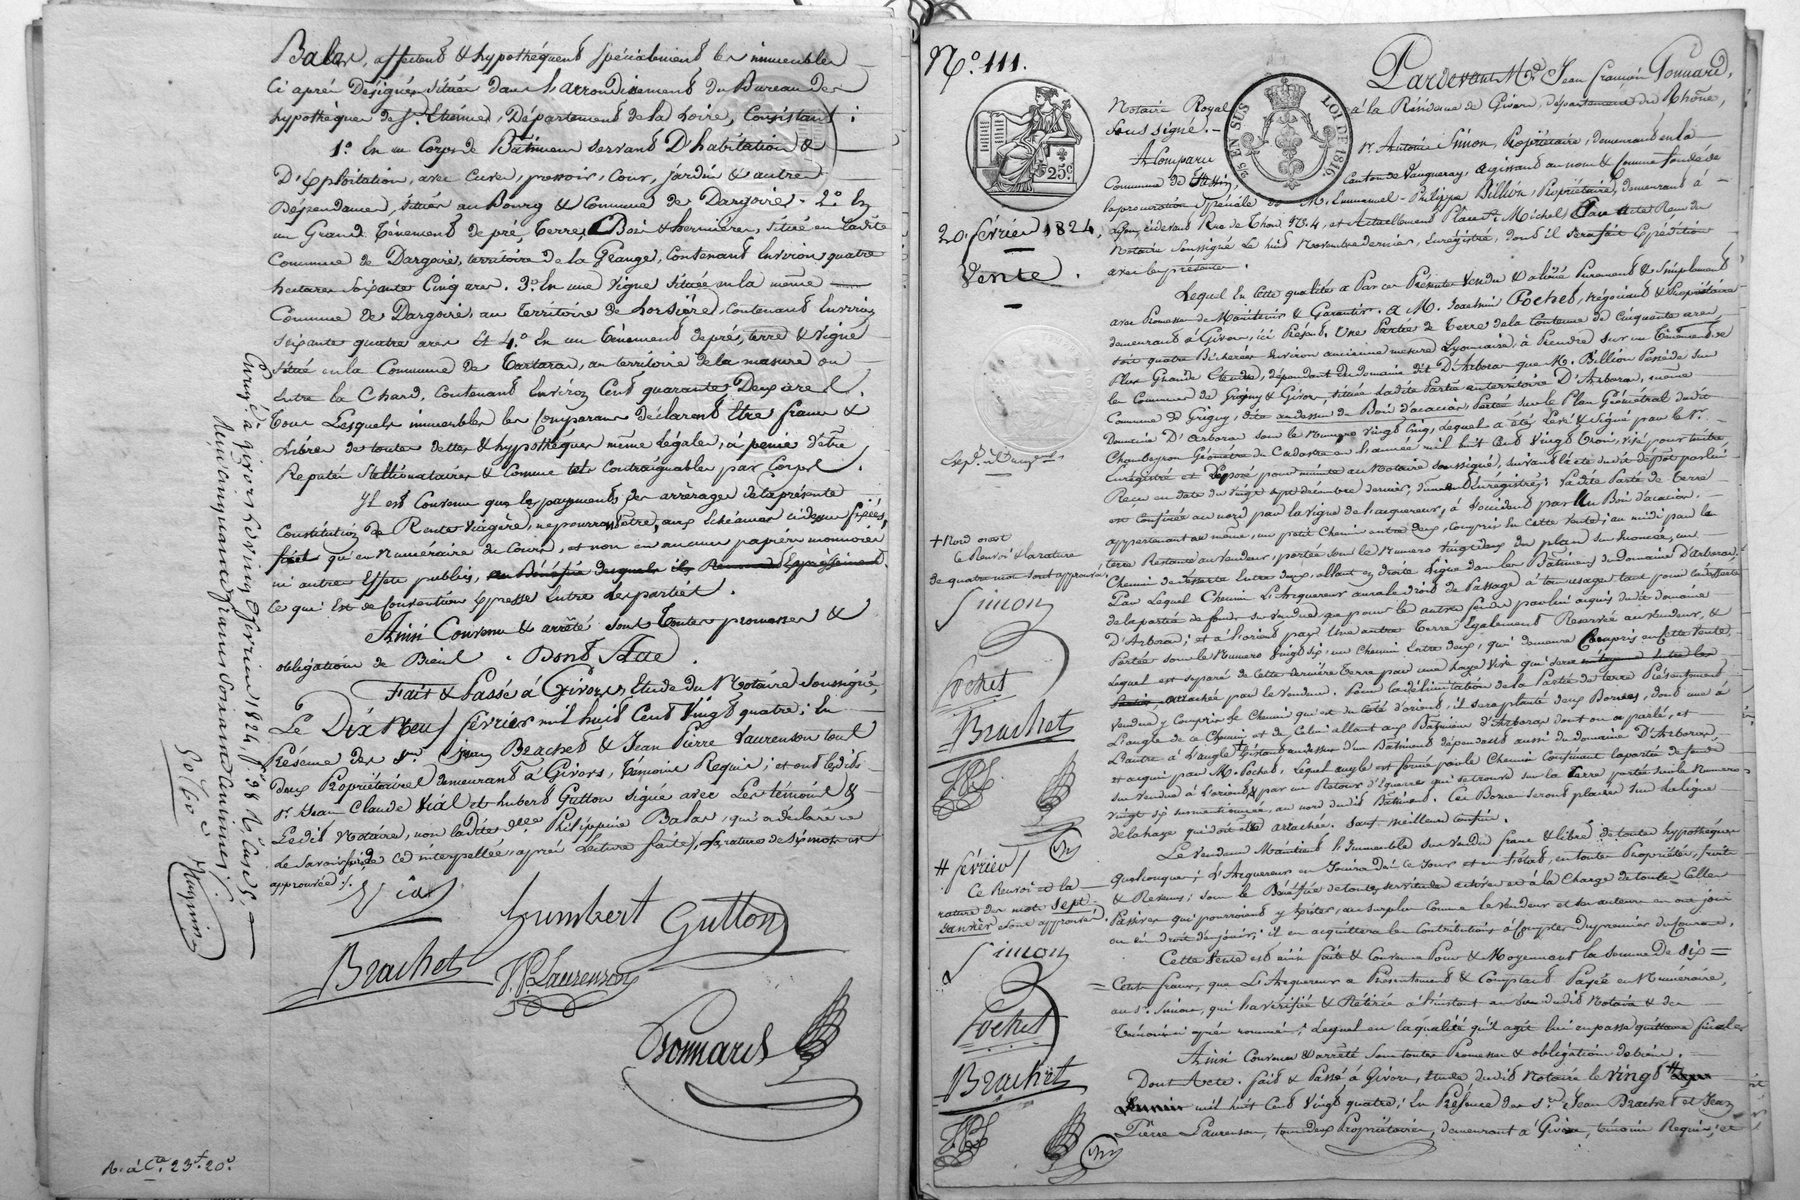 Balas, affectent & hypothéquent spécialement les immeubles
Ci après Désignés situés dans l'arrondissement du Bureau des
hypothèques de St. Etienne, Département de la Loire, Consistant :
1.° En un Corps de Bâtiment servant D'habitation &
D'Exploitation, avec Cuves, pressoir, Cour, jardin & autres
Dépendances, situés au Bourg & Commune de Dargoire. 2.° En
un Grand Ténement de pré, terres, Bois & hermières, situé en ladite
Commune de Dargoire, territoire de la Grange, Contenant Environ quatre
hectares Soixante Cinq ares. 3.° En une vigne située en la même
Commune de Dargoire, au territoire de Contenant Environ
Soixante quatre ares Et 4.° En un Ténement de pré, terre & vigne
situé en la Commune de Tartaras, au territoire de la masure ou
Contenant Environ Cent quarante Deux ares.
Tous Lesquels immeubles les Comparans déclarent Etre francs &
Libres de toutes dettes & hypothèques même légales, à peine d'être
Réputés Stellionataires & Comme tels Contraignables par Corps.
Il est Convenu que les payements des arrérages de la présente
Constitution de Rente viagère, ne pourront être, aux Echéances ci dessus fixées,
fait qu'en Numéraire de Cours, et non en aucuns papiers monnoies
ni autres Effets publics, au Bénéfice desquels ils Renoncent Expressément
Ce qui Est de Convention Expresse Entre les parties.
Ainsi Convenu & arrêté sont Toutes promesses &
obligations de Biens. Dont Acte.
Fait & Passé à Givors, Etude du Notaire Soussigné,
Le Dix Neuf février mil huit Cent Vingt quatre ; En
Présence des Srs. Jean Brachet & Jean Pierre Laurenson tous
deux Propriétaires demeurant à Givors, Témoins Requis ; et ont lesdits
Sr. Jean Claude Vial et hubert Gutton signé avec Les témoins &
Ledit Notaire, non ladite Philippine Balas, qui a déclaré ne
Le Savoir de ce interpellée, après Lecture faite, La rature de six mots est
approuvée.
Vial
Humbert Gutton
Brachet
J.P. Laurenson
Gonnard
Enreg.é à Givors Le Vingt février 1824, f.° 98 R.° Cases
Reçu Cinquante francs
50 "
Huguin
R. à C.te 23f. 20c.
N.° 111.
25c.
25 EN SUS
LOI DE 1816.
20. février 1824.
Vente.
Pardevant M.e Jean françois Gonnard,
Notaire Royal à la Résidence de Givors, département du Rhône,
Soussigné.
A Comparu Sr. Antoine Simon, Propriétaire, demeurant en la
Commune de Canton de Vaugneray, agissant au nom & Comme fondé de
la procuration Spéciale de M. Emmanuel-Philippe Billion, Propriétaire, demeurant à
Lyon, cidevant Rue de Thou N.° 4, et Actuellement Place St. Michel, Par Acte Reçu du
Notaire Soussigné Le huit Novembre dernier, Enregistré, dont il sera fait Expédition
avec les présentes.
Lequel En Cette qualité a Par ces Présentes Vendu & aliéné Purement & Simplement
avec Promesse de Maintenir & Garantir. A M. Joachim Pochet, négociant & Propriétaire
demeurant à Givors, ici Présent. Une Partie de Terre de la Contenue de Cinquante ares,
soit quatre Bicherées Environ ancienne mesure Lyonnaise, à Prendre sur un Ténement de
Plus Grande Etendue, dépendant du domaine dit D'Arboras que M. Billion Possède sur
les Communes de Grigny & Givors, située Ladite Partie au territoire D'Arboras, même
Commune de Grigny, dite au dessus du Bois d'acacias, Portée sur le Plan Géométral dudit
Domaine D'Arboras sous le Numéro vingt Cinq, Lequel a été Levé & Signé par le Sr.
Chambeyron Géomètre du Cadastre en l'année mil huit Cent Vingt Trois, visé pour timbre,
Enregistré et Déposé pour minute au Notaire Soussigné, suivant l'acte dudit dépôt par lui
Reçu en date du vingt sept décembre dernier, dûment Enregistré ; Ladite Partie de Terre
est Confinée au nord par la vigne de l'acquéreur, à l'occident par un Bois d'acacias,
appartenant au même, un petit Chemin entre deux, compris En Cette vente ; au midi par la
terre Restante au vendeur, portée sous le Numéro vingt deux du plan sus énoncé, un
Chemin de desserte Entre deux, allant en droite Ligne dans les Bâtimens du Domaine D'Arboras,
Par Lequel Chemin L'acquéreur aura le droit de Passage à tous usages tant pour la desserte
de la partie de fonds ci vendue que pour les autres fonds par lui acquis dudit domaine
D'Arboras ; et à l'orient par Une autre Terre Egalement Réservée au vendeur, &
Portée sous le Numéro vingt six, un Chemin Entre deux, qui demeure Compris en Cette vente,
Lequel est séparé de Cette dernière Terre par une haye vive qui sera
arrachée par le vendeur. Pour la délimitation de la Partie de terre Présentement
Vendue, y Compris le Chemin qui est du Côté d'orient, il sera planté deux Bornes, dont une à
L'angle de ce Chemin, et de Celui allant aux Bâtimens d'Arboras dont on a parlé, et
L'autre à L'angle au dessus d'un Bâtiment dépendant aussi du domaine D'Arboras,
et acquis par M. Pochet, Lequel angle est formé par le Chemin Confinant la partie de fonds
ci Vendue à l'orient, & par un Retour d'Equerre qui se trouve sur la Terre portée sous le Numéro
vingt six susmentionnée, au nord dudit Bâtiment. Ces Bornes seront placées sur la Ligne
de la haye qui doit être arrachée. Sauf meilleurs confins.
Le vendeur Maintient L'immeuble ci vendu franc & libre de toutes hypothèques
quelconques ; L'Acquéreur en Jouira dès ce jour et en l'état, en toute Propriété, fruits
& Revenus ; sous le Bénéfice de toutes servitudes actives et à la Charge de toutes Celles
Passives qui pourraient y Exister, au surplus Comme le vendeur et ses auteurs en ont joui
ou eu droit d'en jouir ; il en acquittera les Contributions à Compter du premier du Courant.
Cette Vente est ainsi faite & Convenue Pour & Moyennant la Somme De Six
Cents francs, que L'Acquéreur a Présentement & Comptant Payée en Numéraire,
au Sr. Simon, qui l'a vérifiée & Retirée à l'instant au vu dudit Notaire & des
Témoins après nommés, Lequel en la qualité qu'il agit lui en passe quittance finale
Ainsi Convenu & arrêté Sous toutes Promesses & obligations de biens.
Dont Acte. fait & Passé à Givors, Etude dudit Notaire le Vingt #
mil huit Cent Vingt quatre ; En Présence des Sr. Jean Brachet et Jean
Pierre Laurenson, tous deux Propriétaires, demeurant à Givors, témoins Requis ; et
+ Nord ouest
Ce Renvoi & la rature
de quatre mots sont approuvés
Simon
Pochet
Brachet
# février /
Ce Renvoi et la
rature des mots sept
Janvier sont approuvés
Simon
Pochet
Brachet